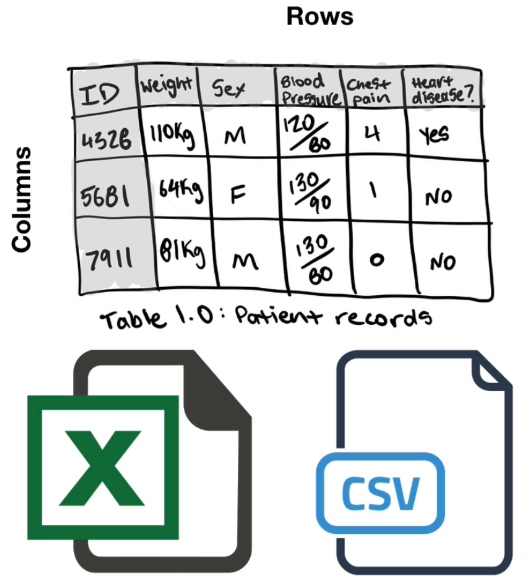 Rows
Columns
ID Weight Sex Blood Pressure Chest pain Heart disease?
4328 110Kg M 120/80 4 Yes
5681 64Kg F 130/90 1 NO
7911 81Kg M 130/80 0 NO
Table 1.0: Patient records
X CSV